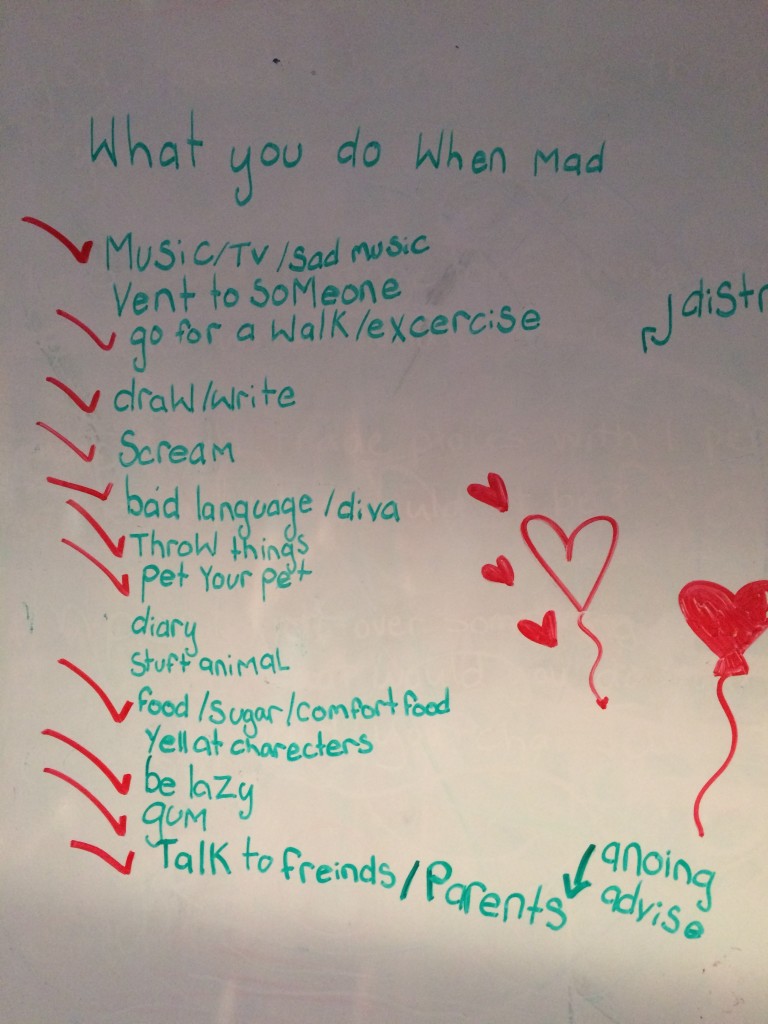 What you do When Mad
Music/TV/sad music
Vent to SoMeone
go for a Walk/excercise
draw/write
Scream
bad language/diva
Throw things
Pet Your pet
diary
Stuft animal
food/sugar/comfort food
Yell at charecters
be lazy
gum
Talk to freinds/Parents
anoing
advise